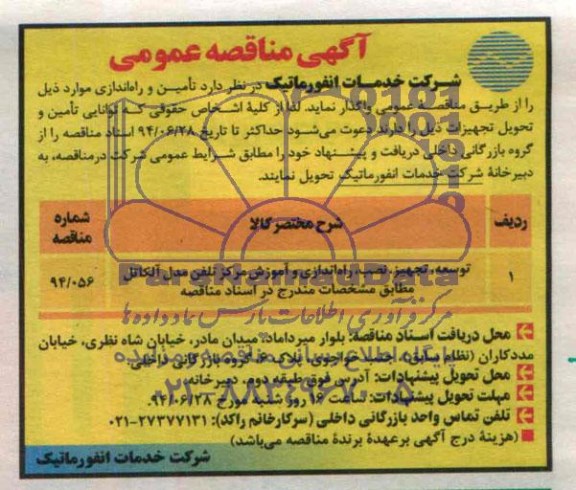 آگهی مناقصه عمومی
شرکت خدمات انفورماتیک در نظر دارد تأمین و راه‌اندازی موارد ذیل
را از طریق مناقصه عمومی واگذار نماید. لذا از کلیهٔ اشخاص حقوقی که توانایی تأمین و
تحویل تجهیزات ذیل را دارند دعوت می‌شود حداکثر تا تاریخ ۹۴/۰۶/۲۸ اسناد مناقصه را از
گروه بازرگانی داخلی دریافت و پیشنهاد خود را مطابق شرایط عمومی شرکت در مناقصه، به
دبیرخانهٔ شرکت خدمات انفورماتیک تحویل نمایند.
ردیف شرح مختصر کالا شماره مناقصه
۱ توسعه، تجهیز، نصب، راه‌اندازی و آموزش مرکز تلفن مدل آلکاتل ۹۴/۰۵۶
مطابق مشخصات مندرج در اسناد مناقصه
محل دریافت اسناد مناقصه: بلوار میرداماد، میدان مادر، خیابان شاه نظری، خیابان
مددکاران (نظام سابق)، جنب خواجوی، پلاک ۶، گروه بازرگانی داخلی.
محل تحویل پیشنهادات: آدرس فوق، طبقه دوم، دبیرخانه.
مهلت تحویل پیشنهادات: ساعت ۱۶ روز شنبه مورخ ۹۴/۰۶/۲۸.
تلفن تماس واحد بازرگانی داخلی (سرکار خانم راکد): ۲۷۳۷۷۱۳۱-۰۲۱
(هزینهٔ درج آگهی بر عهدهٔ برندهٔ مناقصه می‌باشد)
شرکت خدمات انفورماتیک
ParsNamadData
مرکز فرآوری اطلاعات پارس نماد داده ها